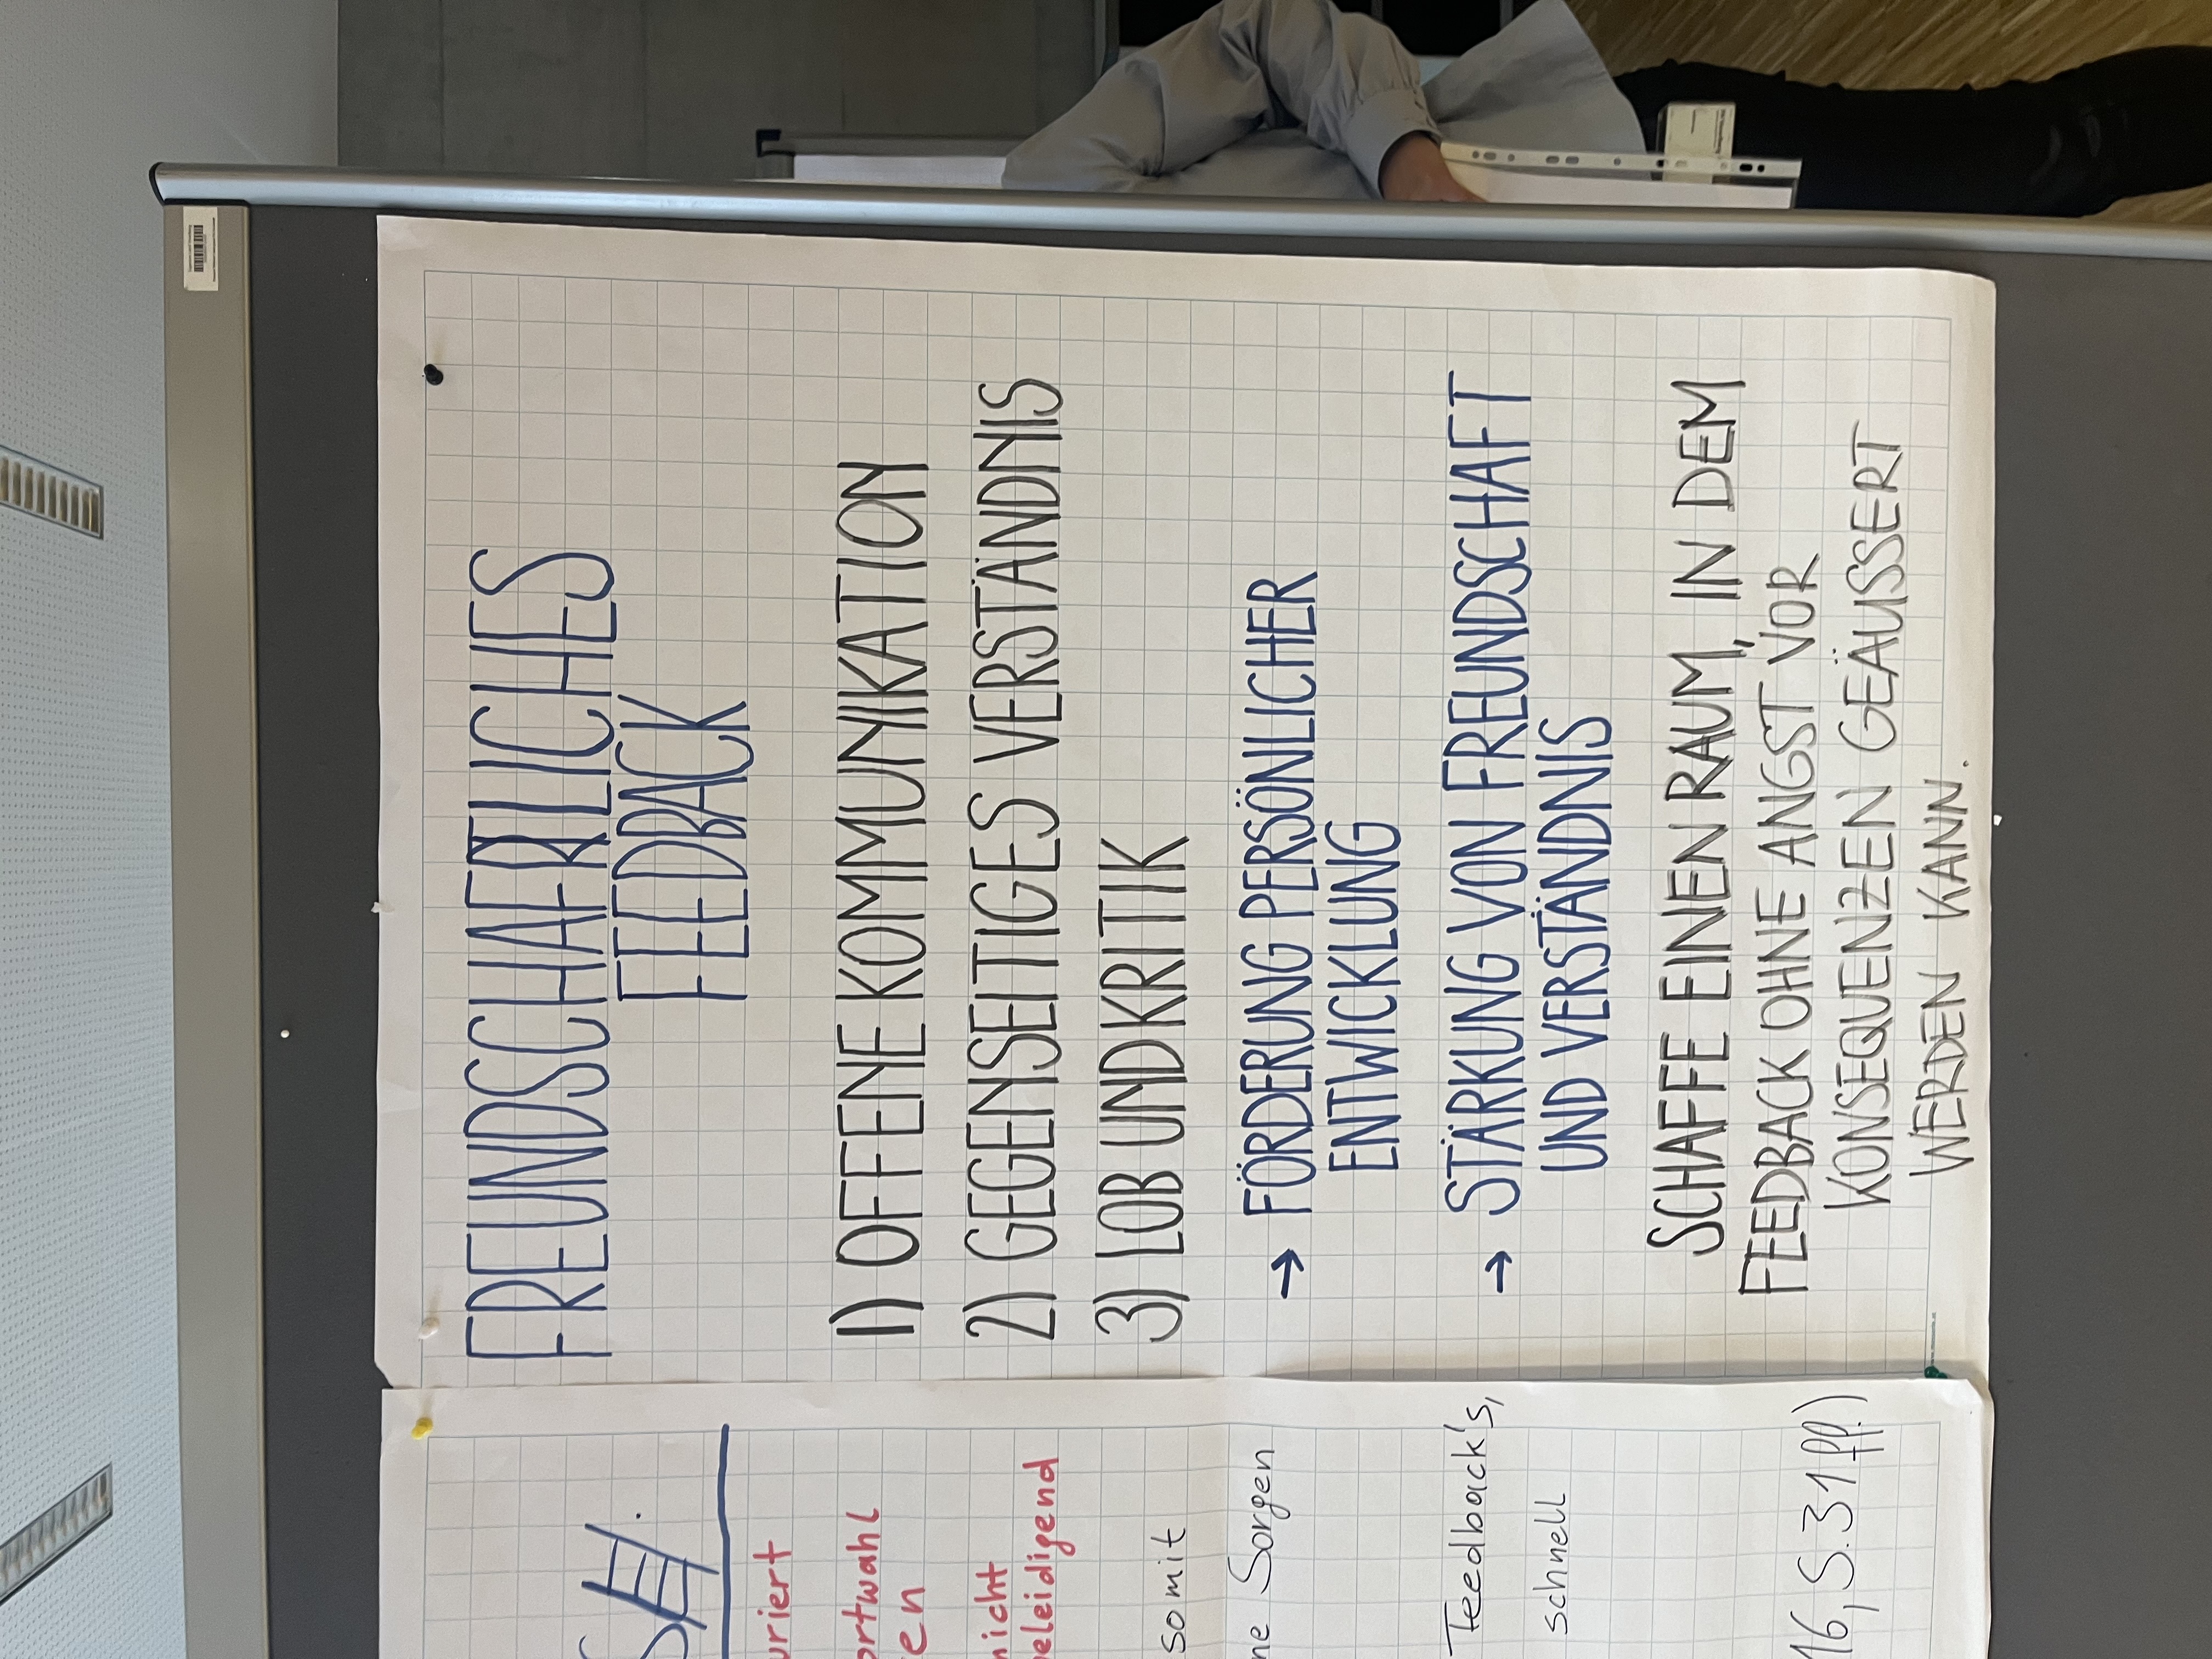 FREUNDSCHAFTLICHES
FEEDBACK
1) OFFENE KOMMUNIKATION
2) GEGENSEITIGES VERSTÄNDNIS
3) LOB UND KRITIK
→ FÖRDERUNG PERSÖNLICHER
ENTWICKLUNG
→ STÄRKUNG VON FREUNDSCHAFT
UND VERSTÄNDNIS
SCHAFFE EINEN RAUM, IN DEM
FEEDBACK OHNE ANGST VOR
KONSEQUENZEN GEÄUSSERT
WERDEN KANN.
uriert
ortwahl
en
nicht
eleidigend
somit
ne Sorgen
Feedback's,
schnell
16, S.31 ff.)